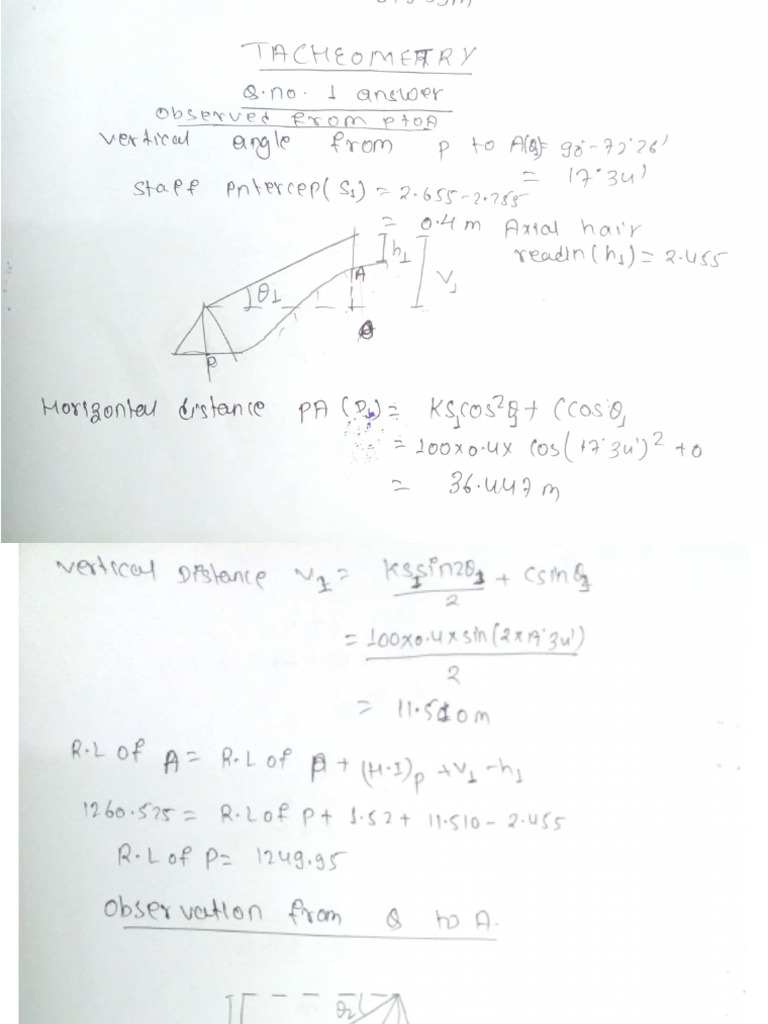 TACHEOMETRY
Q.no. 1 answer
observed from p to A
vertical angle from p to A(θ)= 90°-72°26'
= 17°34'
Staff Intercep(S1) = 2.655-2.255
= 0.4 m Axial hair
readin(h1) = 2.455
h1
A
V1
θ1
P
Horizontal distance PA (D1) = KS1cos²θ1 + Ccosθ1
= 100x0.4x cos(17°34')² + 0
= 36.447 m
Vertical Distance V1 = KS1sin2θ1 + Csinθ1
2
= 100x0.4xsin(2x17°34')
2
= 11.510m
R.L of A = R.L of P + (H.I)p + V1 - h1
1260.525 = R.L of P + 1.52 + 11.510 - 2.455
R.L of P = 1249.95
Observation from Q to A.
θ2